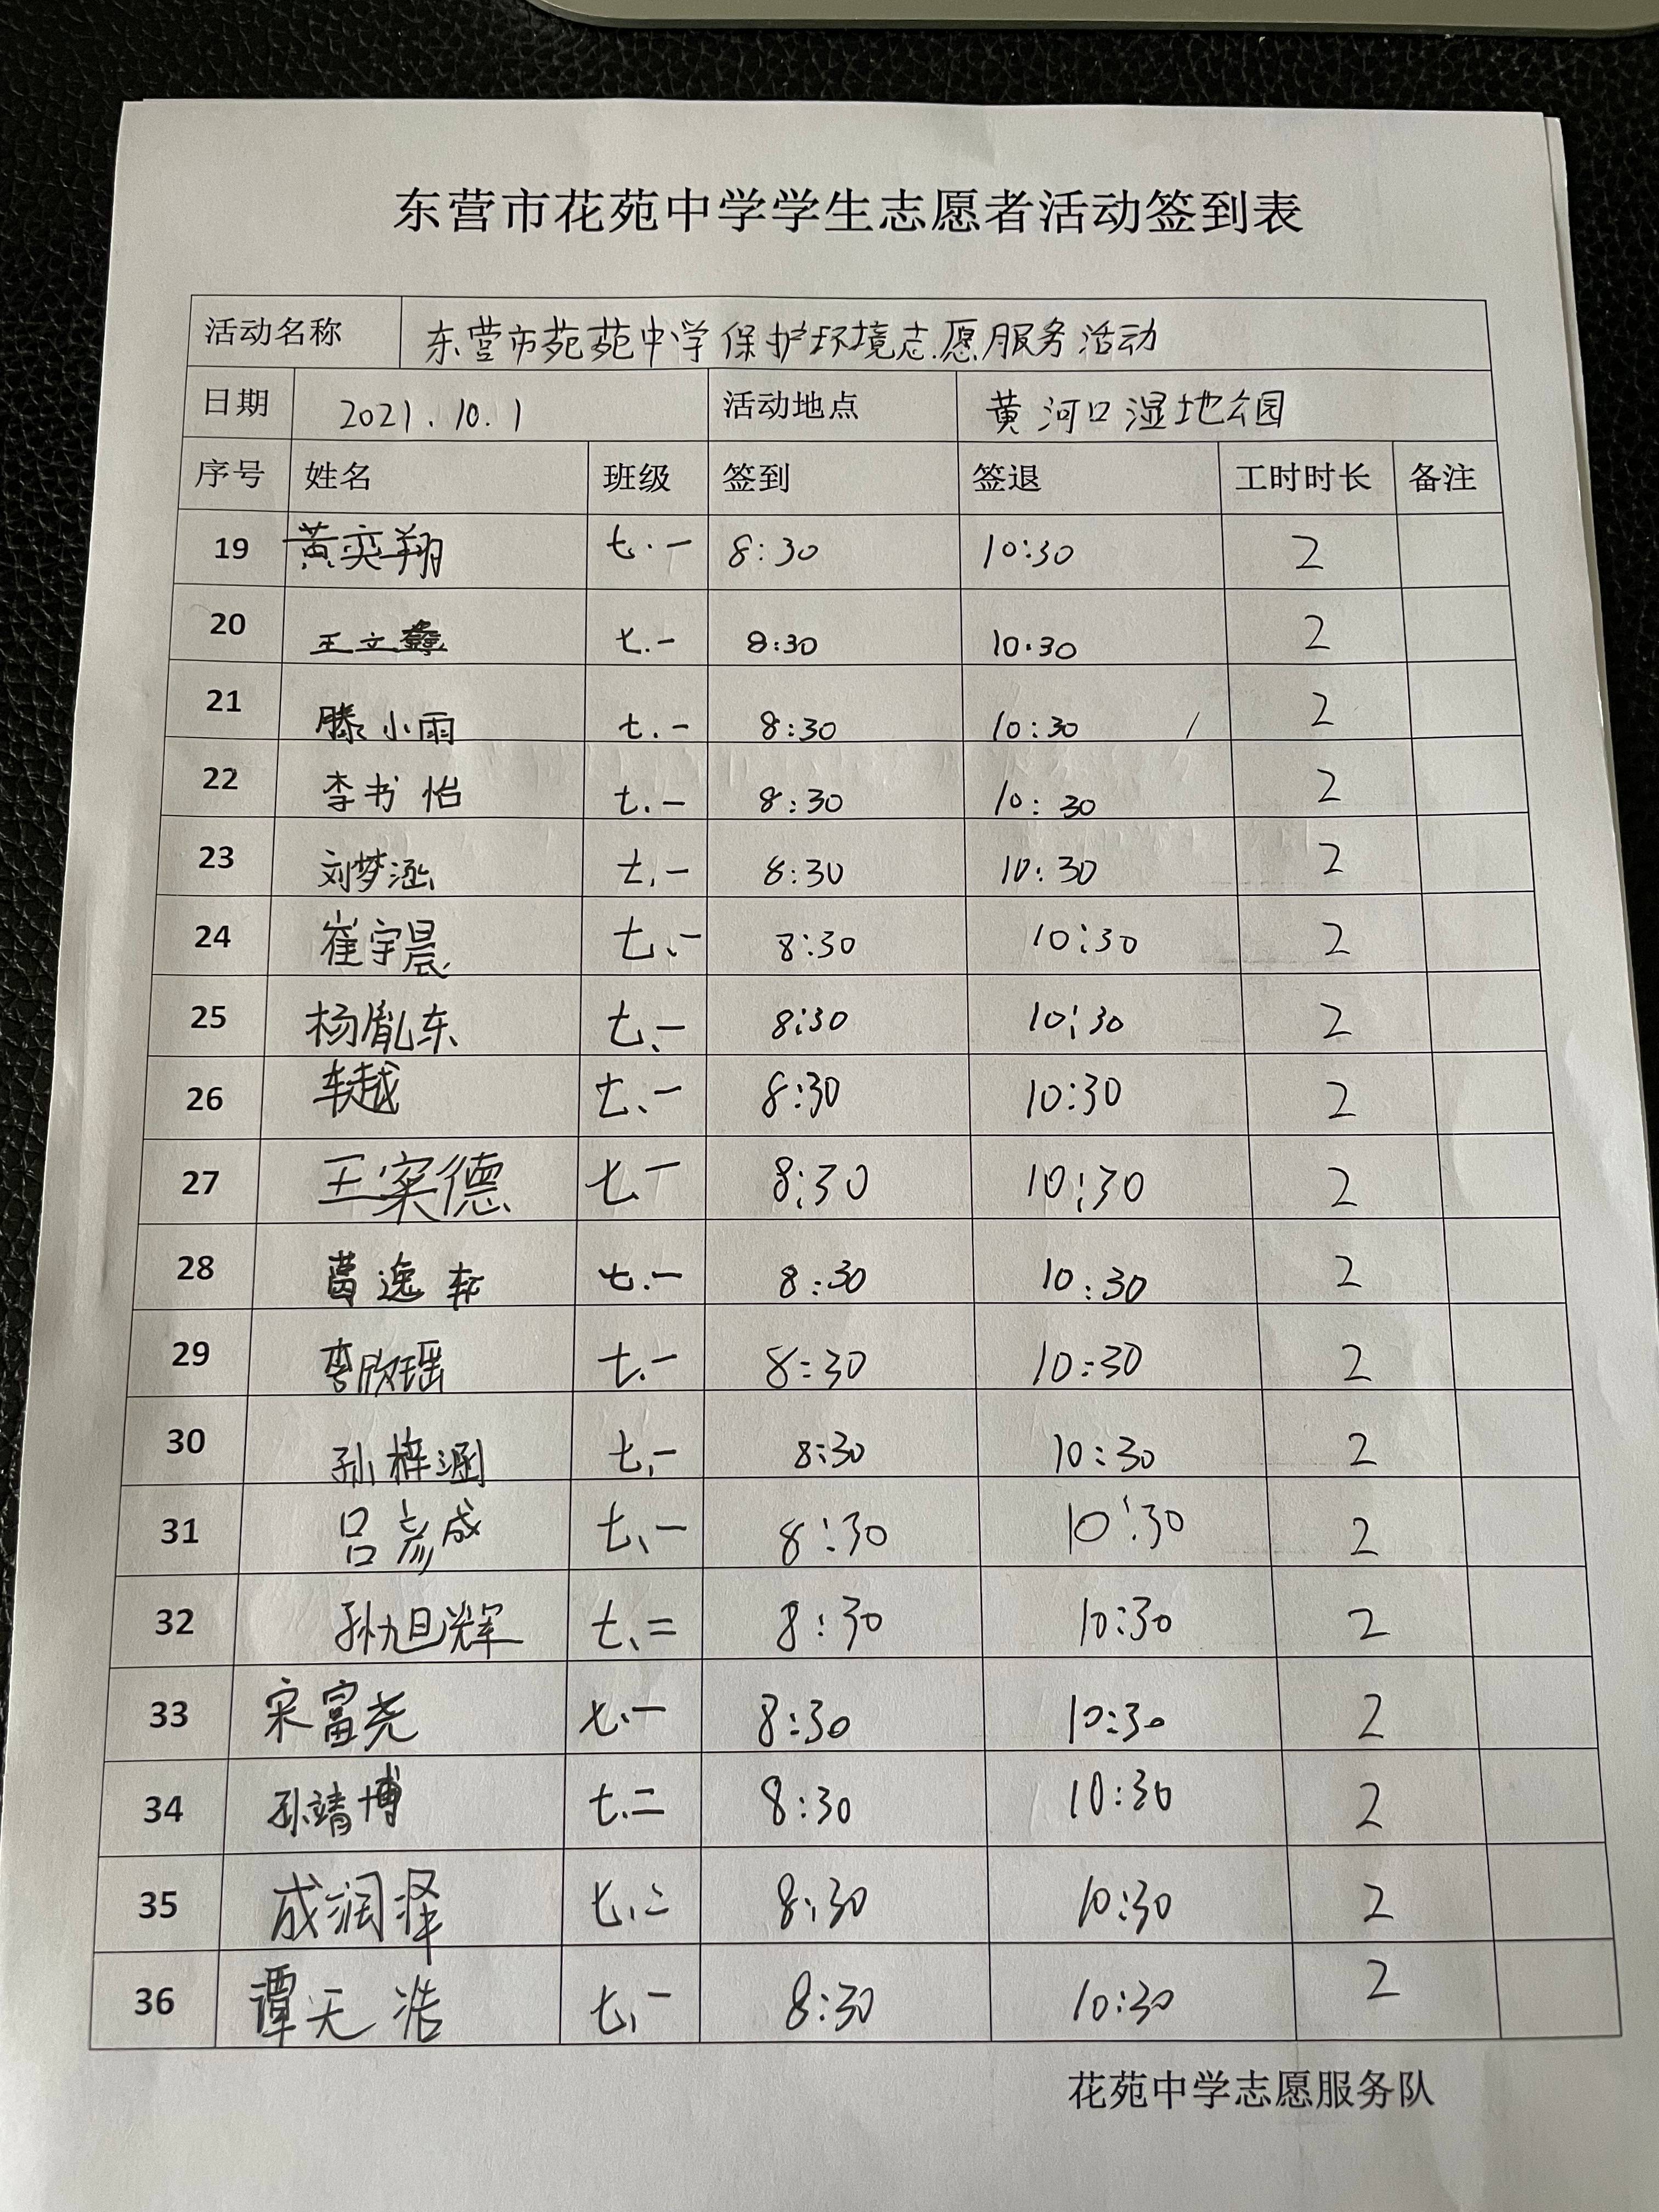 东营市花苑中学学生志愿者活动签到表
活动名称 东营市苑苑中学保护环境志愿服务活动
日期 2021.10.1 活动地点 黄河口湿地公园
序号 姓名 班级 签到 签退 工时时长 备注
19 黄奕翔 七.一 8:30 10:30 2
20 王文 七.一 8:30 10:30 2
21 滕小雨 七.一 8:30 10:30 2
22 李书怡 七.一 8:30 10:30 2
23 刘梦涵 七.一 8:30 10:30 2
24 崔宇晨 七、一 8:30 10:30 2
25 杨胤东 七、一 8:30 10:30 2
26 车越 七、一 8:30 10:30 2
27 王寀德 七、一 8:30 10:30 2
28 葛逸轩 七.一 8:30 10:30 2
29 李欣瑶 七.一 8:30 10:30 2
30 孙梓涵 七、一 8:30 10:30 2
31 吕彦成 七、一 8:30 10:30 2
32 孙旭辉 七、二 8:30 10:30 2
33 宋富尧 七、一 8:30 10:30 2
34 孙靖博 七、二 8:30 10:30 2
35 成润泽 七、二 8:30 10:30 2
36 谭天浩 七、一 8:30 10:30 2
花苑中学志愿服务队